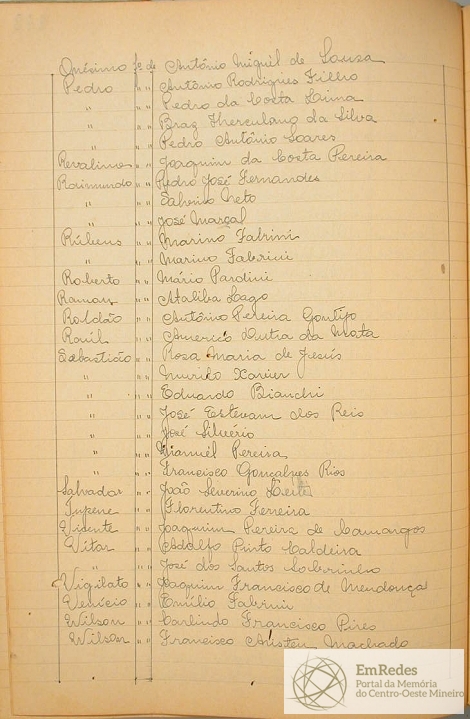 Onésimo fº de António Miguel de Souza
Pedro " " António Rodrigues Filho
" " " Pedro da Costa Lima
" " " Braz Therculano da Silva
" " " Pedro António Soares
" " Joaquim da Costa Pereira
Raimundo " " Pedro José Fernandes
" " " Salvino Neto
" " " José Marçal
Rúbens " " Marino Fabrini
" " " Marino Fabrini
Roberto " " Mário Pardini
Raman " " Ataliba Lago
Roldão " " António Pereira Gontijo
Raul " " Americo Dutra da Mata
Sebastião " " Rosa Maria de Jesús
" " " Murilo Xavier
" " " Eduardo Bianchi
" " " José Estevam dos Reis
" " " José Silvério
" " " Manuel Pereira
" " " Francisco Gonçalves Rios
Salvador " " João Severino
" " Florentino Ferreira
Vicente " " Joaquim Pereira de Camargos
Vitor " " Adolfo Pinto Caldeira
" " " José dos Santos Sobrinho
Vigilato " " Joaquim Francisco de Mendonça
" " Emílio Fabrini
Wilson " " Carlindo Francisco Pires
Wilson " " Francisco Machado
EmRedes
Portal da Memória
do Centro-Oeste Mineiro